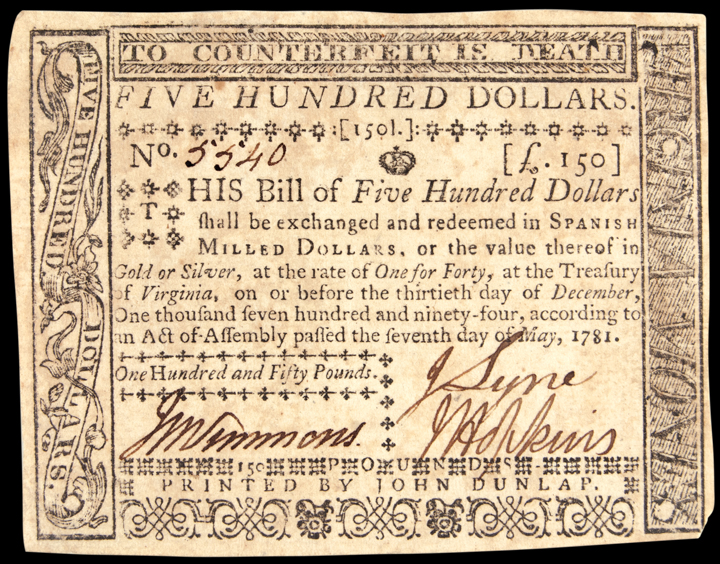 TO COUNTERFEIT IS DEATH
FIVE HUNDRED DOLLARS.
:[150l.]:
No. 5540
[£.150]
THIS Bill of Five Hundred Dollars
ſhall be exchanged and redeemed in SPANISH
MILLED DOLLARS, or the value thereof in
Gold or Silver, at the rate of One for Forty, at the Treaſury
of Virginia, on or before the thirtieth day of December,
One thouſand ſeven hundred and ninety-four, according to
an Act of Aſſembly paſſed the ſeventh day of May, 1781.
One Hundred and Fifty Pounds.
J Lyne
Jm Simmons
J Hopkins
150 POUNDS
PRINTED BY JOHN DUNLAP.
FIVE HUNDRED DOLLARS.
VIRGINIA